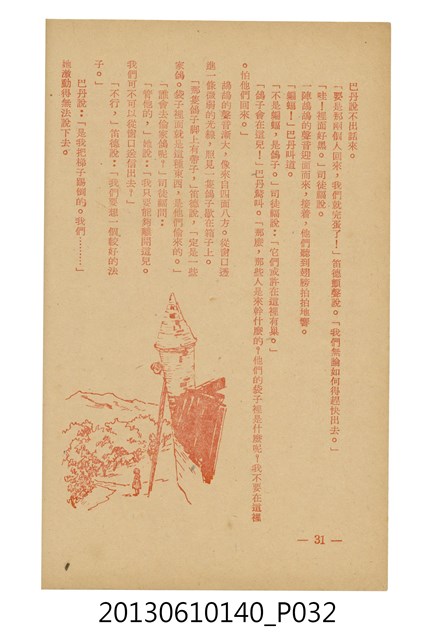 巴丹說不出話來。
「要是那兩個人回來，我們就完蛋了！」笛德顫聲說。「我們無論如何得趕快出去。」
「哇！裡面好黑。」司徒輻說。
一陣鴣鴣的聲音迎面而來，接着，他們聽到翅膀拍拍地響。
「蝙蝠！」巴丹叫道。
「不是蝙蝠，是鴿子。」司徒輻說：「它們或許在這裡有巢。」
「鴿子會在這兒！」巴丹驚叫。「那麼，那些人是來幹什麼的？他們的袋子裡是什麼呢？我不要在這裡
。怕他們回來。」
鴣鴣的聲音漸大，像來自四面八方。從窗口透
進一條微弱的光線，照見一隻鴿子歇在箱子上。
「那隻鴿子脚上有帶子，」笛德說，「定是一些
家鴿。袋子裡面就是這種東西，是他們偷來的。」
「誰會去偷家鴿呢？」司徒輻問：
「管他的，」她說：「我只要能夠離開這兒。
我們可不可以從窗口溜出去？」
「不行，」笛德說：「我們要想一個較好的法
子。」
巴丹說：「是我把梯子踢倒的。我們………」
她激動得無法說下去。
— 31 —
20130610140_P032